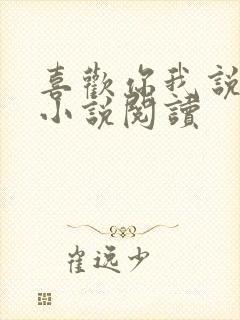 喜歡你我說
小說閱讀
崔逸少